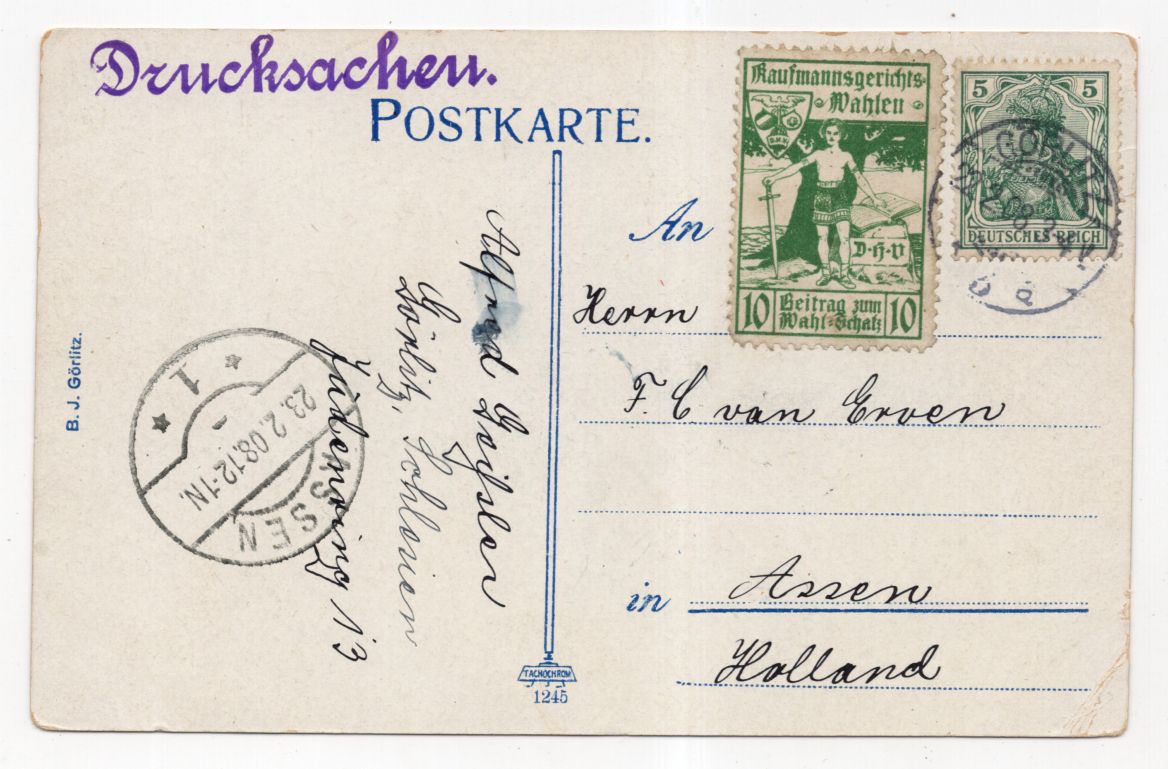 Drucksachen.
POSTKARTE.
Kaufmannsgerichts-
Wahlen
D.H.V.
D-H-V
10 Beitrag zum Wahl-Schatz 10
5 5
DEUTSCHES REICH
GÖRLITZ
An
Herrn
F. C. van Erven
in Assen
Holland
Alfred
Görlitz, Schlesien
Jüdenring 13
B. J. Görlitz.
1
23.2.08.12-1N.
ASSEN
TACHOCHROM
1245